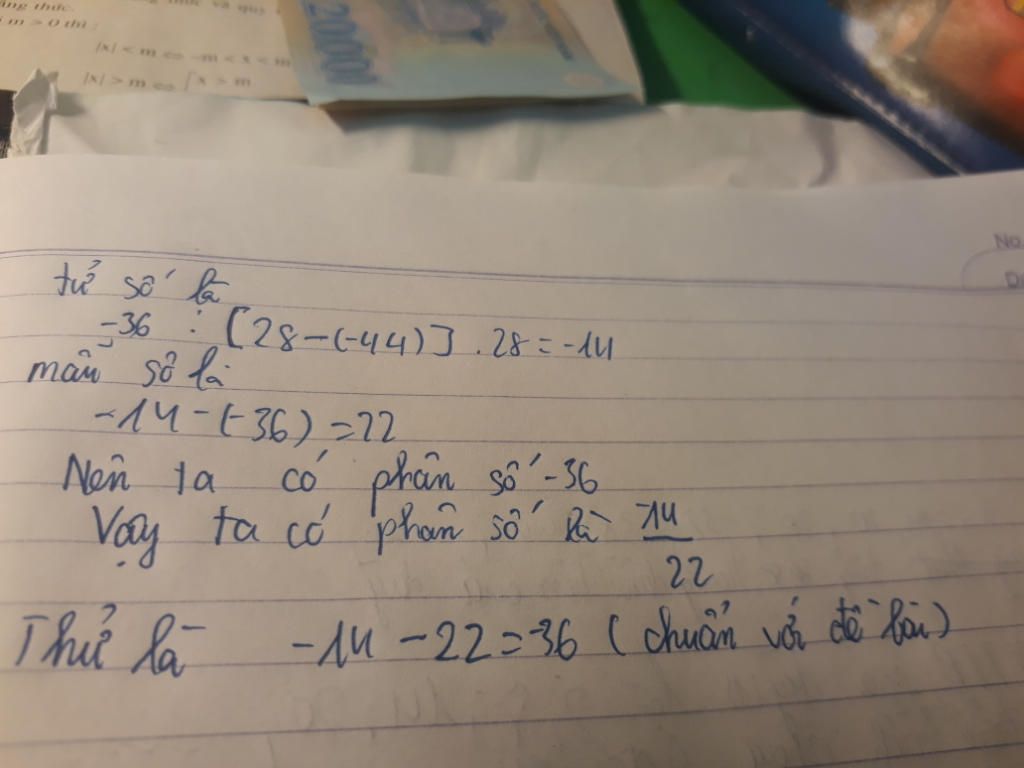 ằng thức.
m > 0 thì :
|x| < m ⇔ -m < x < m
|x| > m ⇔ [ x > m
20000
No.
tử số là
-36 : [28-(-44)] . 28 = -14
mẫu số là
-14-(-36) = 22
Nên ta có phân số -36
Vạy ta có phân số là -14/22
Thử là -14 - 22 = -36 ( chuẩn với đề bài)